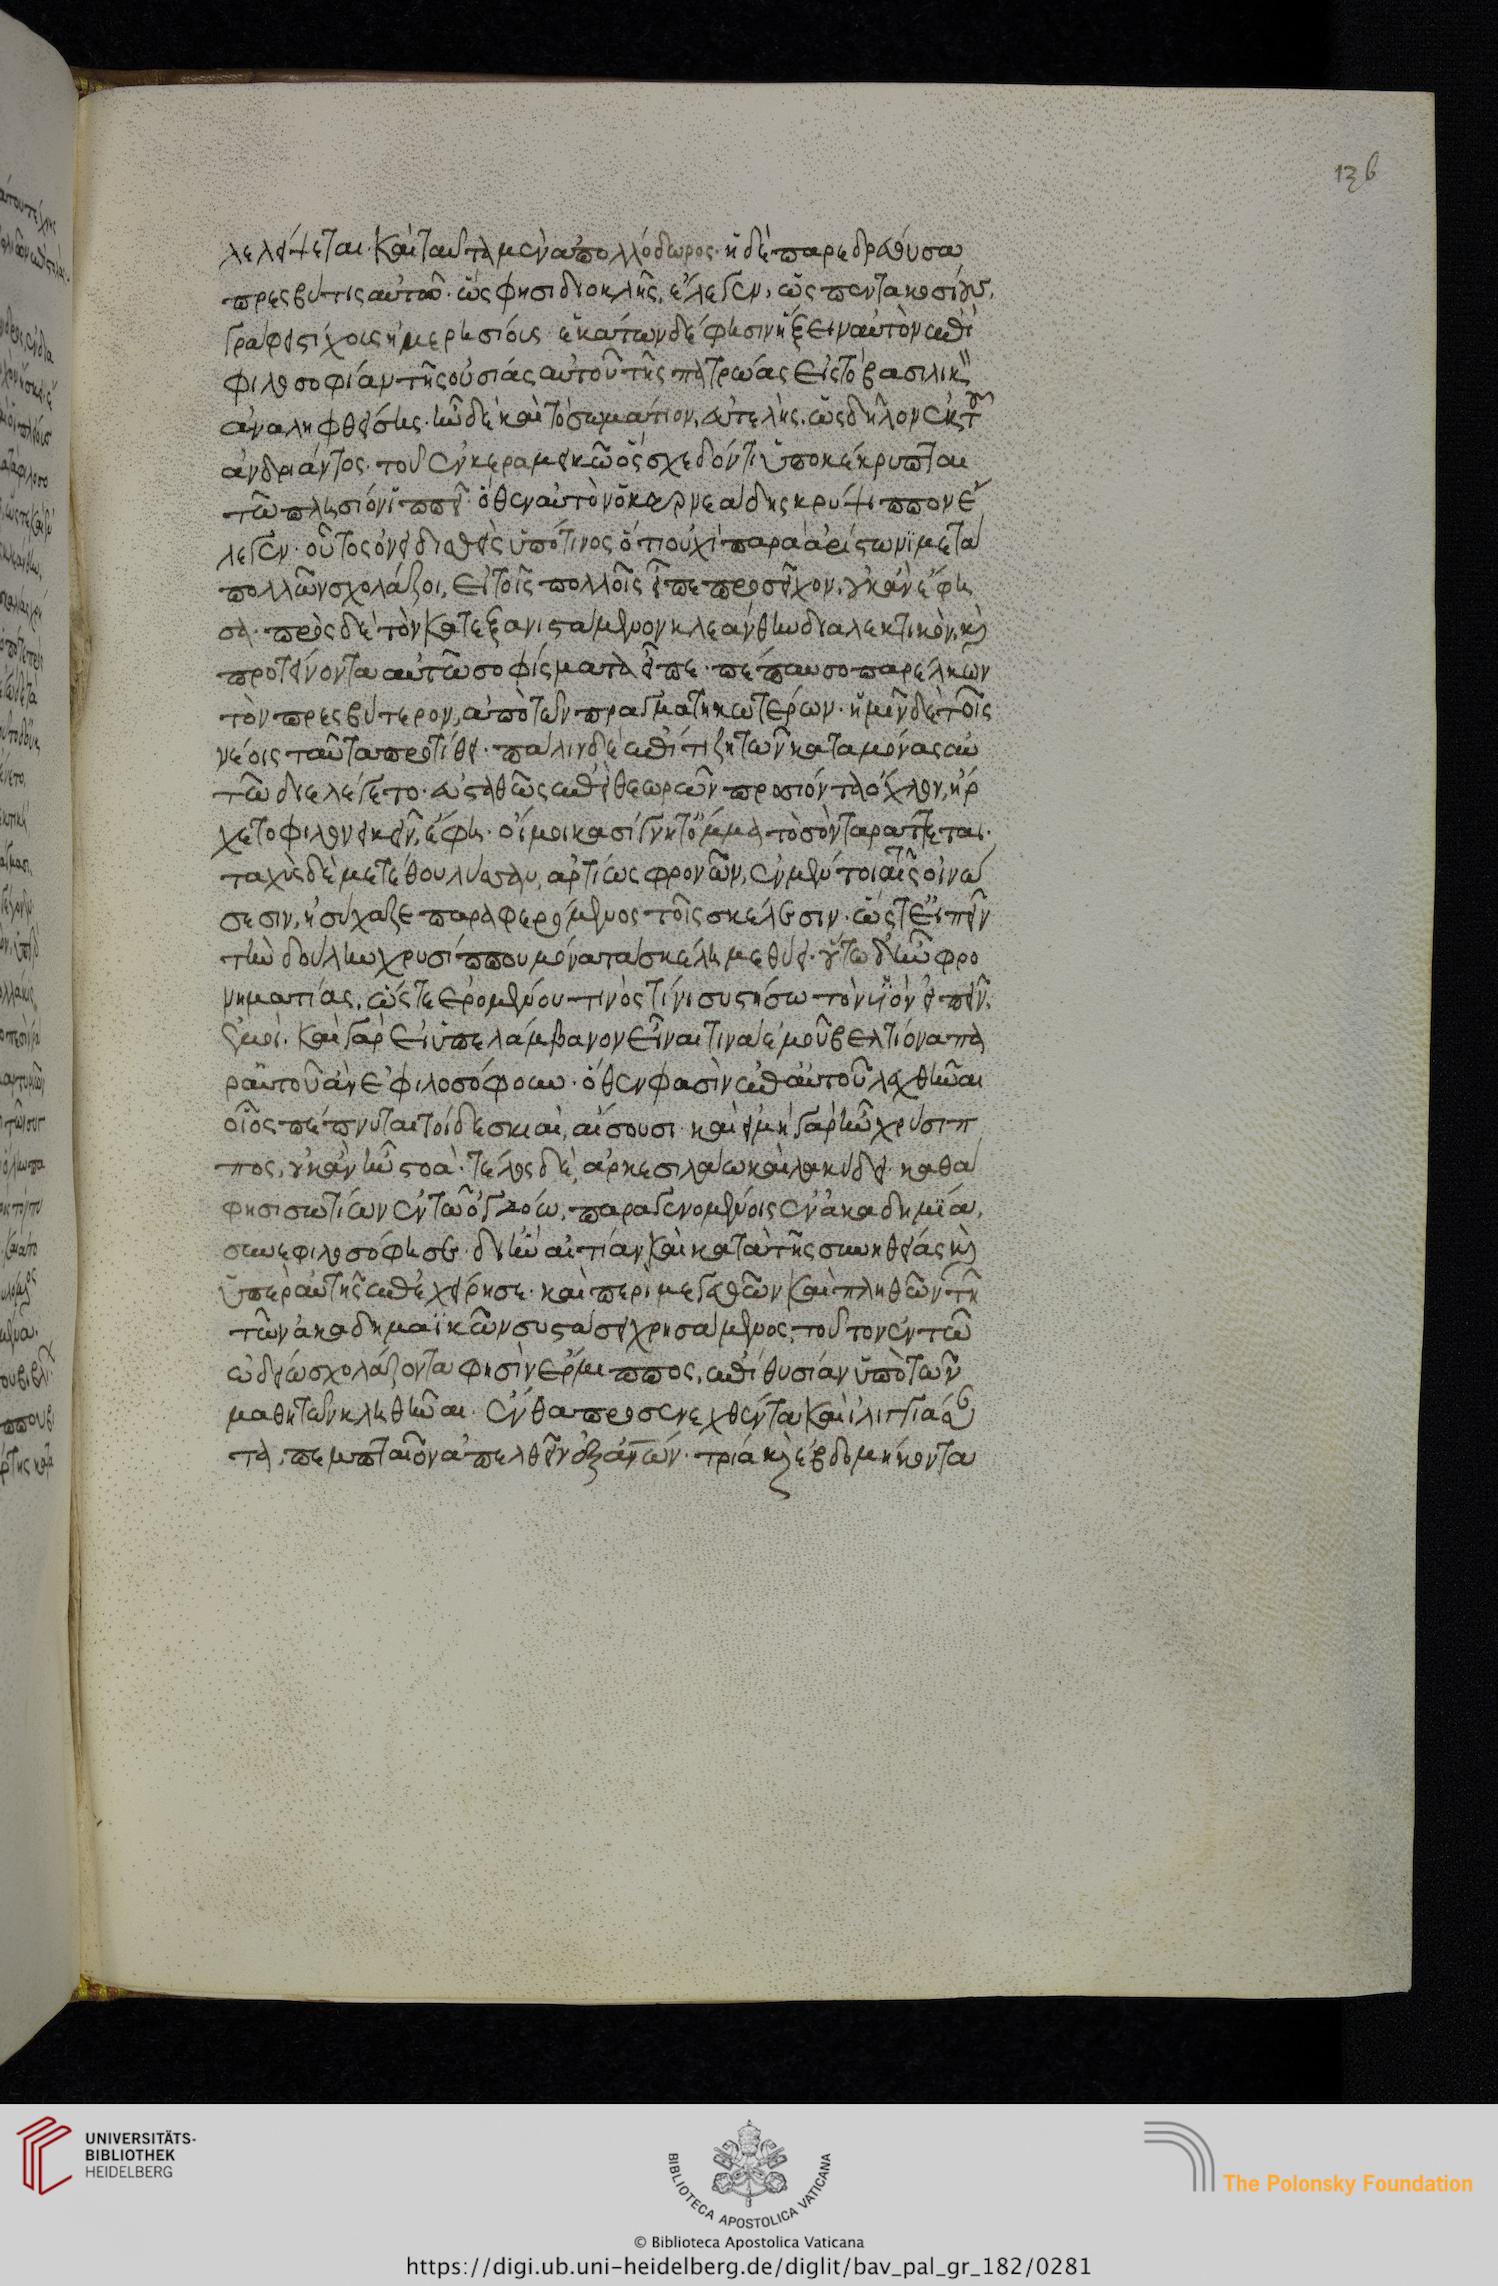 136
λελείψεται. καὶ ταῦτα μὲν ἀπολλόδωρος. ἡ δὲ παρεδρεύουσα
πρεσβύτις αὐτῶ. ὥς φησι διοκλῆς, ἔλεγεν, ὡς πεντακοσίους
γράφει στίχους ἡμερησίους ἑκάτων δέ φησιν ἥξειν αὐτὸν ἐπὶ
φιλοσοφίαν τῆς οὐσίας αὐτοῦ τῆς πατρώας εἰς τὸ βασιλικὸν
ἀναληφθείσης. ἦν δὲ καὶ τὸ σωμάτιον, εὐτελὴς. ὡς δῆλον ἐκ τοῦ
ἀνδριάντος. τοῦ ἐν κεραμεικῶ ὅς σχεδόν τι ὑποκέκρυπται
τῶ πλησίον ἱππεῖ. ὅθεν αὐτὸν ὁ καρνεάδης κρύψιππον ἔ
λεγεν. οὗτος ὀνειδισθεὶς ὑπό τινος ὅτι οὐχὶ παρὰ ἀρίστωνι μετὰ
πολλῶν σχολάζοι, εἰ τοῖς πολλοῖς εἶπε προσεῖχον, οὐκ ἂν ἐφι
σα. πρὸς δὲ τὸν κατεξανιστάμενον κλεάνθην διαλεκτικὸν, καὶ
προτείνοντα αὐτῶ σοφίσματα εἶπε. πέπαυσο παρέλκων
τὸν πρεσβύτερον, ἀπὸ τῶν πραγματικωτέρων. ἡμῖν δὲ τοῖς
νέοις ταῦτα προτίθει. πάλιν δὲ ἐπεί τι ζητῶν κατα μόνας αὐ
τῶ διελέγετο. εὐσταθῶς ἐπεὶ θεωρῶν προσιόντα ὄχλον, ἤρ
χετο φιλονεικεῖν, ἔφη. οἴμοι κασίγνητ ὄμμα τὸ σὸν ταράττεται.
ταχὺς δὲ μετέθου λύσσαν, ἀρτίως φρονῶν, ἐν μέντοι ταῖς οἰνώ
σεσιν, ἡσύχαζε παραφερόμενος τοῖς σκέλεσιν. ὥστε εἰπεῖν
τὴν δούλην χρυσίππου μόνα τὰ σκέλη μεθύει. οὕτω δ' ἦν φρο
νηματίας, ὥστε ἐρομένου τινὸς τίνι συστήσω τὸν υἱὸν εἰπεῖν,
ἐμοί. καὶ γὰρ εἰ ὑπελάμβανον εἶναι τινα ἐμοῦ βελτίονα πα
ρ αὐτοῦ ἂν ἐφιλοσόφουν. ὅθεν φασὶν ἐπ αὐτοῦ λεχθῆναι
οἷος πέπνυται τοὶ δὲ σκιαὶ, αἴσουσι. καὶ εἰ μὴ γὰρ ἦν χρύσιπ
πος, οὐκ ἂν ἦν στοὰ. τέλος δὲ, ἀρκεσιλάω καὶ λακύδει. καθά
φησι σωτίων ἐν τῶ ὀγδόω, παραγενομένοις ἐν ἀκαδημΐα,
συνεφιλοσόφησε. δι ἣν αἰτίαν καὶ κατὰ τῆς συνηθείας καὶ
ὑπὲρ αὐτῆς ἐπεχείρησε. καὶ περὶ μεγεθῶν καὶ πληθῶν τῆ
τῶν ἀκαδημαϊκῶν συστάσει χρησάμενος, τοῦτον ἐν τῶ
ὠδείω σχολάζοντα φησὶν ἕρμιππος, ἐπὶ θυσίαν ὑπὸ τῶν
μαθητῶν κληθῆναι. ἔνθα προσενεχθέντα καὶ ἰλιγγιάσαν
τα, πεμπταῖον ἀπελθεῖν ἐξ ἀνων. τρία καὶ ἑβδομήκοντα
UNIVERSITÄTS-
BIBLIOTHEK
HEIDELBERG
BIBLIOTECA APOSTOLICA VATICANA
The Polonsky Foundation
© Biblioteca Apostolica Vaticana
https://digi.ub.uni-heidelberg.de/diglit/bav_pal_gr_182/0281